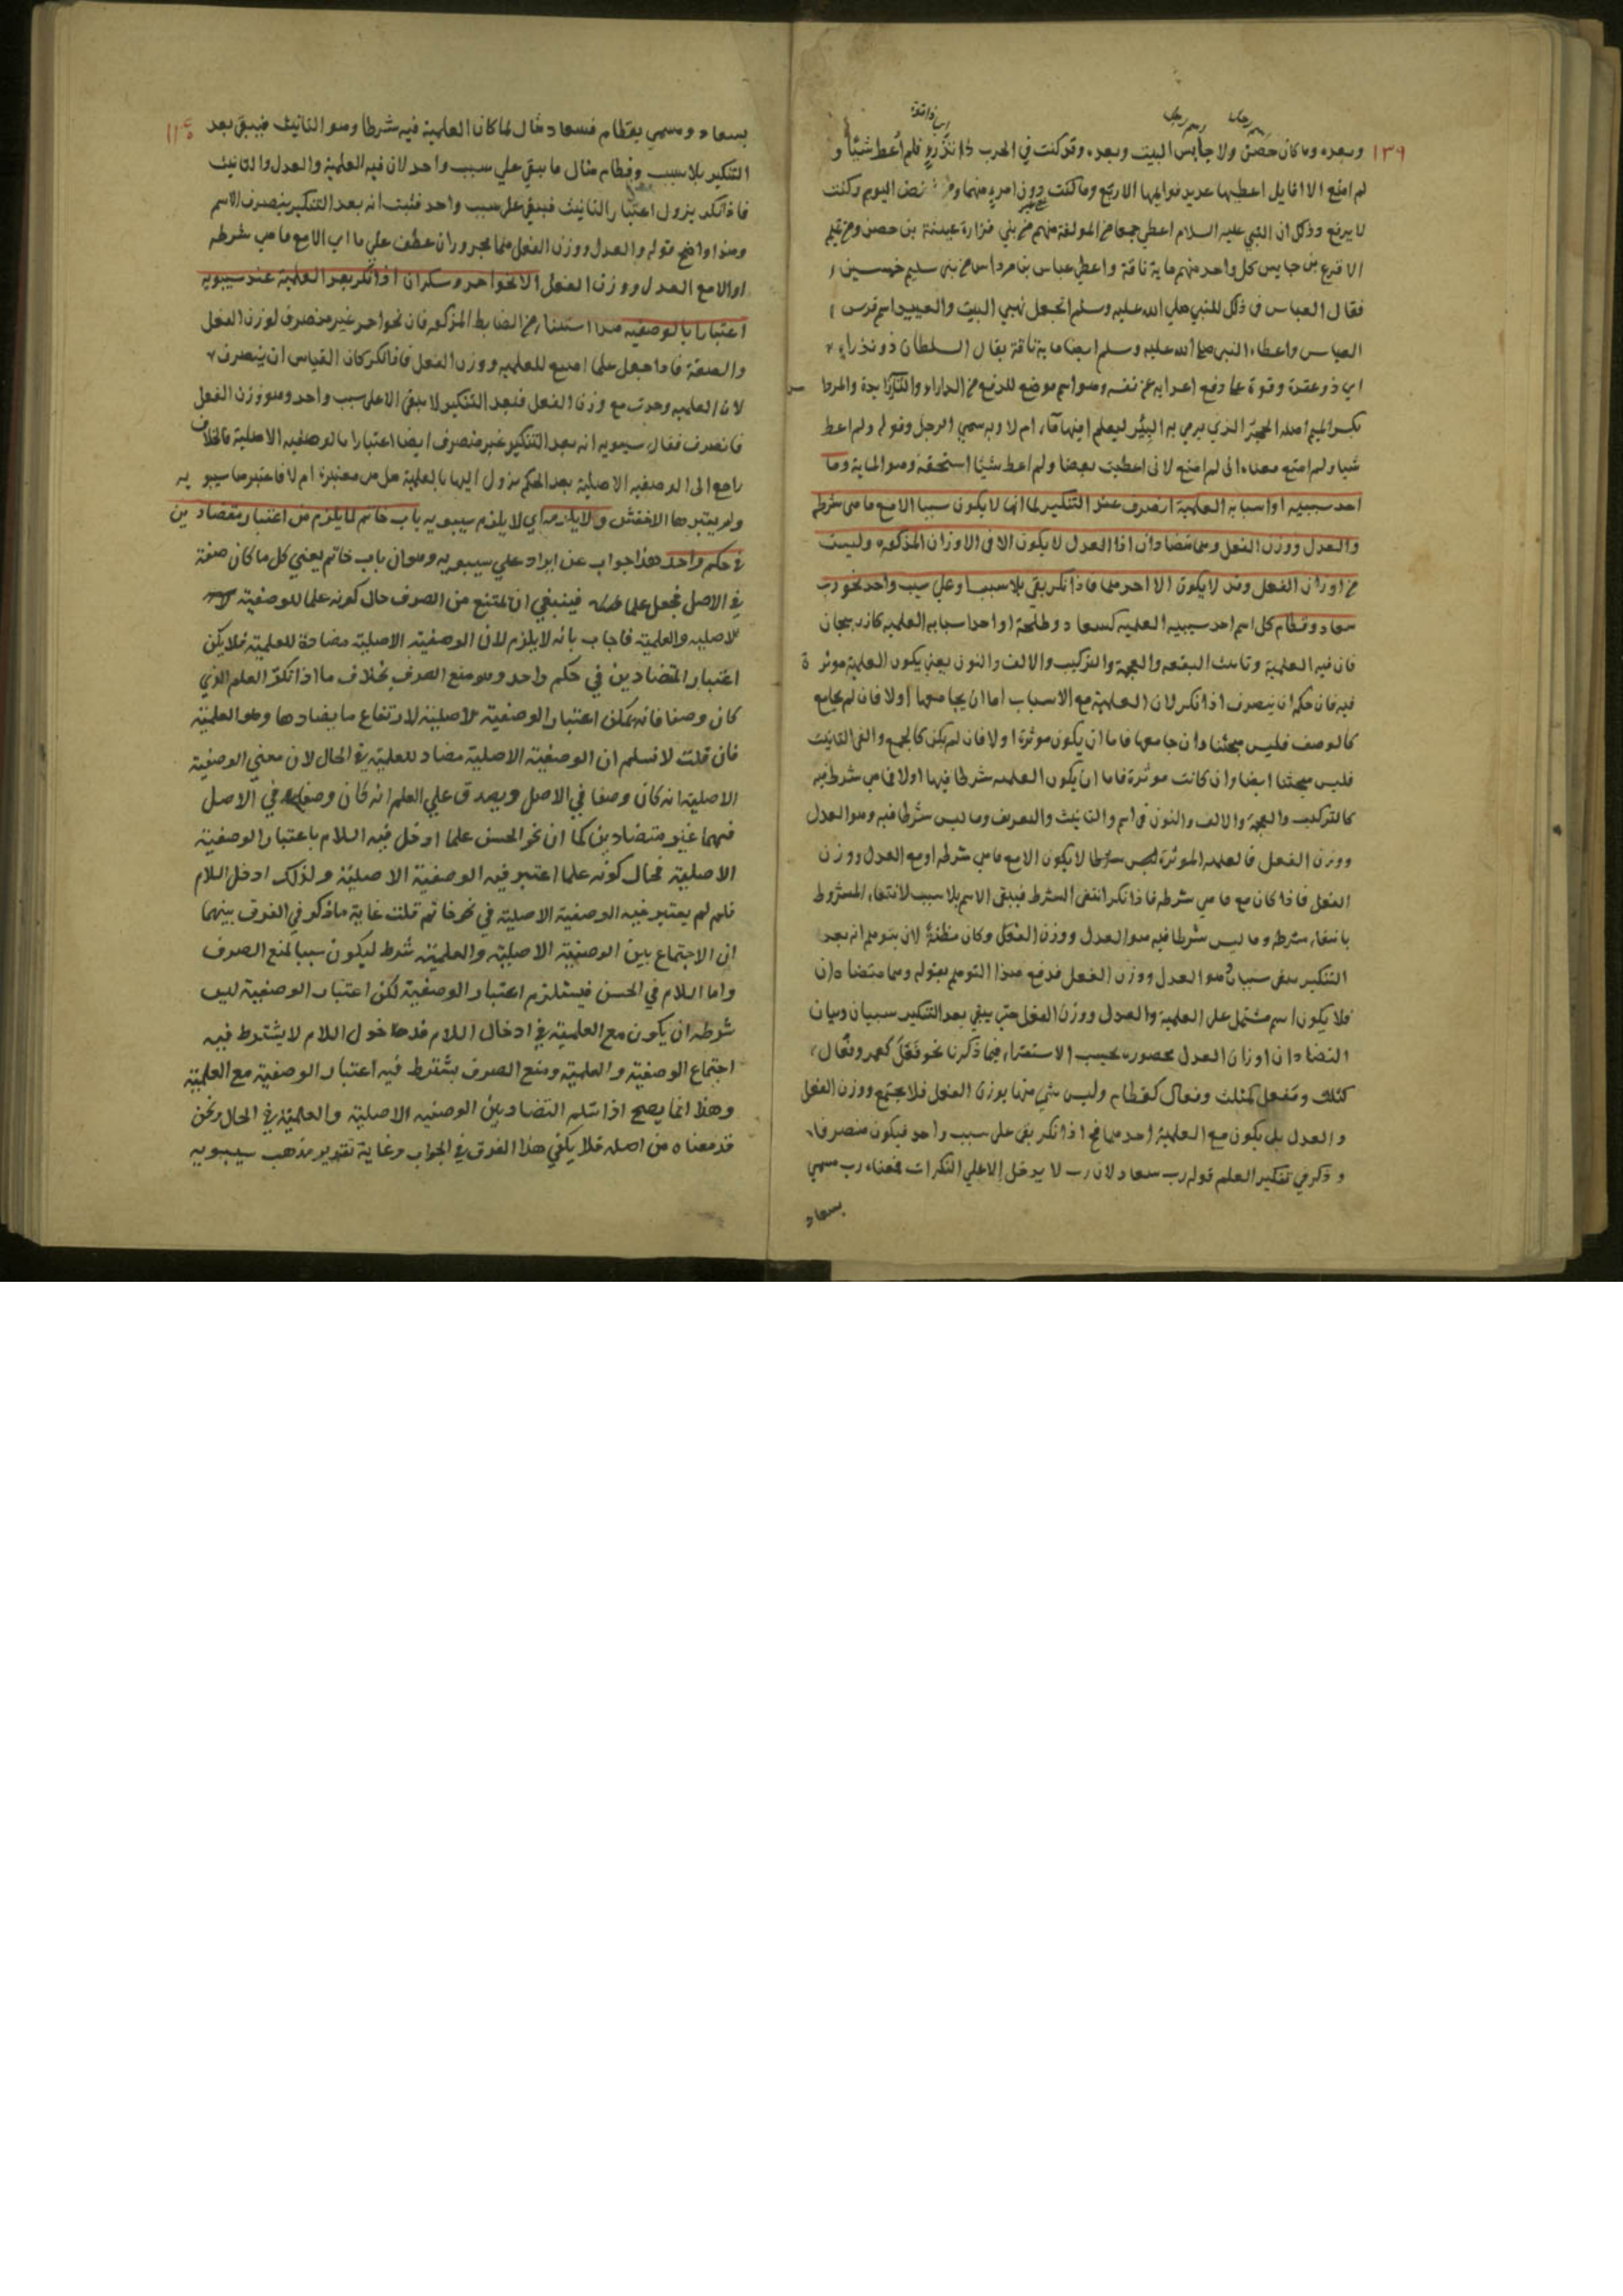 اسم رجل اسم رجل اي ذا قوة
١٣٩
وبعده وما كان حصن ولا حابس البيت وبعده وقد كنت في الحرب ذا تُدْرَءٍ فلم اُعط شيئًا و
لم امنع الا افايل اعطيتها عديد قوايمها الاربع وما كنت دون امرء منهما ومن تضع اليوم
لا يرفع وذلك ان النبي عليه السلام اعطي جمعا من المولفة منهم من بني فزارة عيينة بن حصن ومن تميم
الاقرع بن حابس كل واحد منهم ماية ناقة واعطي عباس بن مرداس من بني سليم خمسين
فقال العباس في ذلك للنبي صلي الله عليه وسلم اتجعل نهبي البيت والعبيد اسم فرس
العباس واعطاه النبي صلي الله عليه وسلم ايضا ماية ناقة يقال السلطان ذو تدراء
اي ذو عدة وقوة علي دفع اعدايه عن نفسه وهو اسم موضع للدفع من الدراء والتاء زايدة والمرداس
بكسر الميم اصله الحجر الذي يرمي به في البئر ليعلم افيها ماء ام لا وبه سمي الرجل وقوله ولم اعط
شيا ولم امنع معناه اني لم امنع لاني اعطيت بعضا ولم اعط شيئا استحقه وهو الماية وما
احد سببيه او اسبابه العلمية انصرف عند التنكير لما انها لا يكون سببا الا مع ما هي شرطه
والعدل ووزن الفعل وهما متضادان اذا العدل لا يكون الا في الاوزان المذكورة وليست
من اوزان الفعل وقد لا يكون الا احدهما فاذا نكر بقي بلا سبب او علي سبب واحد نحو رب
سعاد وقطام كل اسم احد سببيه العلمية كسعاد وطلحة او احد اسبابه العلمية كاذربيجان
فان فيه العلمية وتانيث البقعة والعجمة والتركيب والالف والنون يعني يكون العلمية موثرة
فيه فان حكمه ان ينصرف اذا نكر لان العلمية مع الاسباب اما ان يجامعها اولا فان لم يجامع
كالوصف فليس مبحثنا وان جامعها فاما ان يكون موثرة اولا فان لم يكن كالجمع والفي التانيث
فليس مبحثنا ايضا وان كانت موثرة فاما ان يكون العلمية شرطا فيها اولا فما هي شرط فيه
كالتركيب والعجمة والالف والنون في اسم والتانيث والمعرف وما ليس شرطا فيه وهو العدل
ووزن الفعل فالعلمية الموثرة ليس سببا لا يكون الا مع ما هي شرطه او مع العدل ووزن
الفعل فاذا كان مع ما هي شرطه فاذا نكر انتفي الشرط فيبقي الاسم بلا سبب لانتفاء المشروط
بانتفاء شرطه وما ليس شرطا فيه هو العدل ووزن الفعل وكان مظنة لان يتوهم انه بعد
التنكير يبقي سببان هو العدل ووزن الفعل فدفع هذا التوهم بقوله وهما متضادان
فلا يكون اسم مشتمل علي العلمية والعدل ووزن الفعل حتي يبقي بعد التنكير سببان وبيان
التضاد ان اوزان العدل محصورة بحسب الاستقراء فيما ذكرنا نحو فُعَلَ كعمر وفُعال
كثلاث ومفعل كمثلث وفعال كقطام وليس شئ منها بوزن الفعل فلا يجتمع ووزن الفعل
والعدل بل يكون مع العلمية احدهما فح اذا نكر بقي علي سبب واحد فيكون منصرفا
وذكر في تنكير العلم قوله رب سعاد لان رب لا يدخل الا علي النكرات فمعناه رب مسمي
بسعاد
١١٤
بسعاد ومسمي بقطام فسعاد مثال لما كان العلمية فيه شرطا وهو التانيث فيبقي بعد
التنكير بلا سبب وقطام مثال ما يبقي علي سبب واحد لان فيه العلمية والعدل والتانيث
فاذا نكر يزول اعتبار التانيث فيبقي علي سبب واحد فثبت انه بعد التنكير ينصرف الاسم
وهذا واضح قوله والعدل ووزن الفعل هما مجروران عطف علي ما اي الا مع ما هي شرطه
او الا مع العدل ووزن الفعل الا نحو احمر وسكران اذا نكر بعد العلمية عند سيبويه
اعتبارا بالوصفية هذا استثناء من الضابط المذكور فان نحو احمر غير منصرف لوزن الفعل
والصفة فاذا جعل علما امتنع للعلمية ووزن الفعل فاذا نكر كان القياس ان ينصرف
لان العلمية وحدت مع وزن الفعل فبعد التنكير لا يبقي الا علي سبب واحد وهو وزن الفعل
فانصرف فقال سيبويه انه بعد التنكير غير منصرف ايضا اعتبارا بالوصفية الاصلية فالخلاف
راجع الي الوصفية الاصلية بعد الحكم بزوالها بالعلمية هل هي معتبرة ام لا فاعتبرها سيبويه
ولم يعتبرها الاخفش ولا يلزمه اي لا يلزم سيبويه باب خاتم لما يلزم من اعتبار متضادين
في حكم واحد هذا جواب عن ايراد علي سيبويه وهو ان باب خاتم يعني كل ما كان صفة
في الاصل فجعل علما فينبغي ان لمتنع من الصرف حال كونه علما للوصفية
الاصلية والعلمية فاجاب بانه لا يلزم لان الوصفية الاصلية مضادة للعلمية فلا يمكن
اعتبار المتضادين في حكم واحد وهو منع الصرف بخلاف ما اذا نكر العلم الذي
كان وصفا فانه يمكن اعتبار الوصفية الاصلية لارتفاع ما يضادها وهو العلمية
فان قلت لا نسلم ان الوصفية الاصلية مضاد للعلمية في الحال لان معني الوصفية
الاصلية انه كان وصفا في الاصل ويصدق علي العلم انه كان وصفا في الاصل
فهما غير متضادين كما ان نحو الحسن علما ادخل فيه اللام باعتبار الوصفية
الاصلية فحال كونه علما اعتبر فيه الوصفية الاصلية ولذلك ادخل اللام
فلم لم يعتبر فيه الوصفية الاصلية في نحو خاتم قلت غاية ما ذكر في الفرق بينهما
ان الاجتماع بين الوصفية الاصلية والعلمية شرط ليكون سببا لمنع الصرف
واما اللام في الحسن فيستلزم اعتبار الوصفية لكن اعتبار الوصفية ليس
شرطه ان يكون مع العلمية في ادخال اللام فدخول اللام لا يشترط فيه
اجتماع الوصفية والعلمية ومنع الصرف يشترط فيه اعتبار الوصفية مع العلمية
وهذا انما يصح اذا سلم التضاد بين الوصفية الاصلية والعلمية في الحال ونحن
قد معناه من اصله فلا يكفي هذا الفرق في الجواب وغاية تقدير مذهب سيبويه